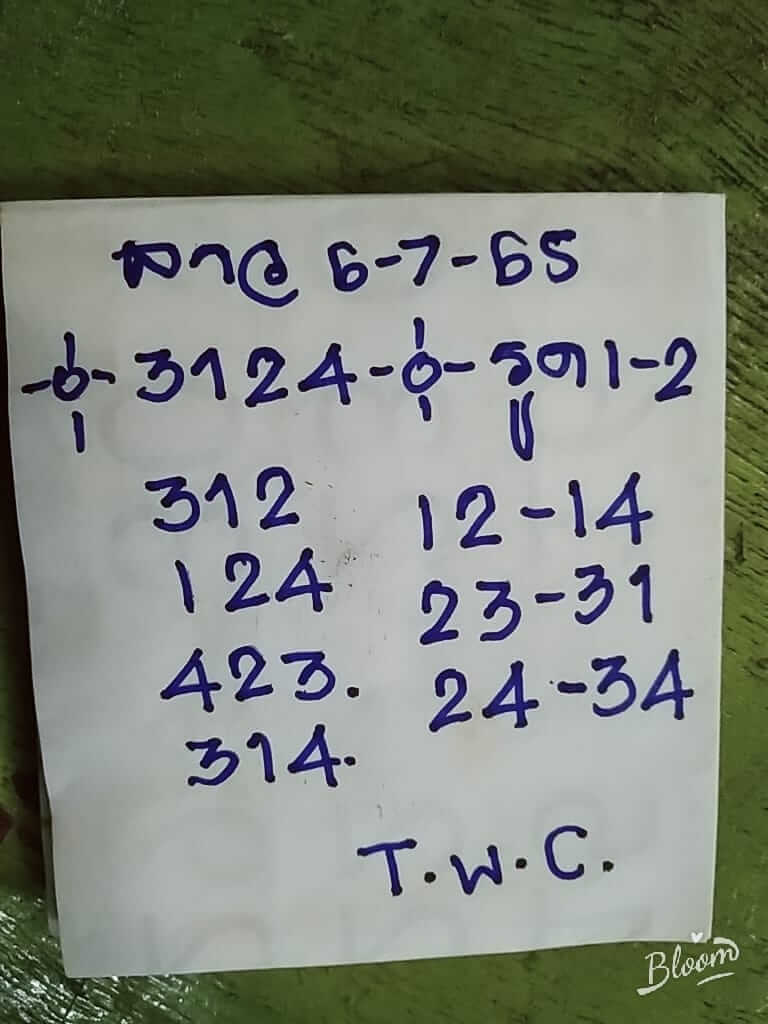 ลาว 6-7-65
3124 - รูด 1-2
312 12-14
124 23-31
423. 24-34
314.
T.W.C.
Bloom